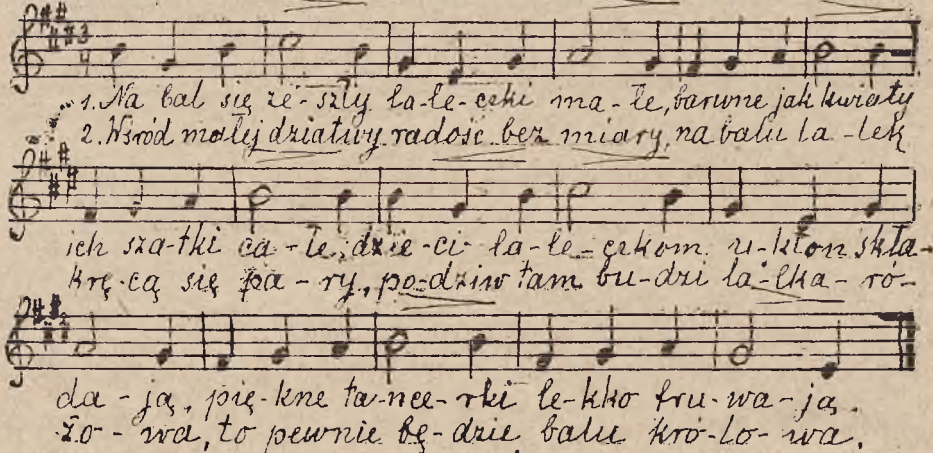 3
4
1. Na bal się ze-szły la-le-czki ma-łe, barwne jak kwiaty
2. Wśród małej dziatwy radość bez miary, na balu la-lek
ich sza-tki ca-łe, dzie-ci la-le-czkom u-kłon skła-
krę-cą się pa-ry, po-dziw tam bu-dzi la-lka-ro-
da-ją, pię-kne ta-nce-rki le-kko fru-wa-ją.
żo-wa, to pewnie bę-dzie balu kró-lo-wa.